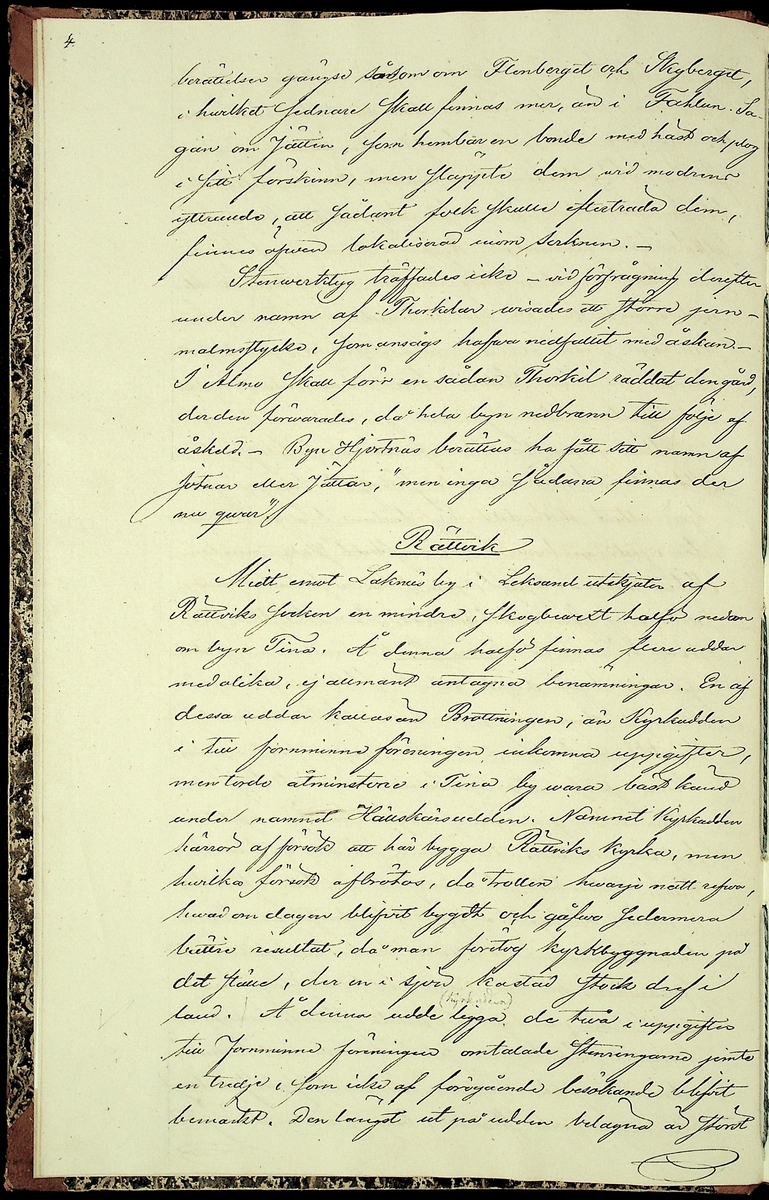 4.
berättelser gängse såsom om Flenberget och Skyberget,
i hwilket sednare skall finnas mer, än i Fahlun. Sa-
gan om Jätten, som hembär en bonde med häst och plog
i sitt förskinn, men släppte dem wid modrens
yttrande, att sådant folk skulle efterträda dem,
finnes äfwen lokaliserad inom socknen. —
Stenwerktyg träffades icke — wid förfrågning derefter
under namn af Thorkilar wisades ett större jern-
malmsstycke, som ansågs hafwa nedfallit med åskan. —
I Almo skall förr en sådan Thorkil räddat den gård,
der den förwarades, då hela byn nedbrann till följe af
åskeld. — Byn Hjortnäs berättas ha fått sitt namn af
jotnar eller Jättar, "men inga sådana finnas der
nu qwar".
Rättvik
Midt emot Laknäs by i Leksand utskjuter af
Rättviks socken en mindre, skogbewext halfö nedan
om byn Tina. Å denna halfö finnas flere uddar
med olika, ej allmänt antagna benämningar. En af
dessa uddar kallas än Brottningen, än Kyrkudden
i till fornminne föreningen inkomna uppgifter,
men torde åtminstone i Tina by wara bäst känd
under namnet Hällskärsudden. Namnet Kyrkudden
härrör af försök att här bygga Rättviks Kyrka, men
hwilka försök afbrötos, då trollen hwarje natt refwo,
hwad om dagen blifvit bygdt och gåfwo sedermera
bättre resultat, då man företog kyrkbyggnaden på
det ställe, der en i sjön kastad stock dref i
land. Å denna udde (Kyrkudden) ligga de twå i uppgifter
till Fornminne föreningen omtalade Stenringarne jemte
en tredje, som icke af föregående besökande blifvit
bemärkt. Den längst ut på udden belägna är störst